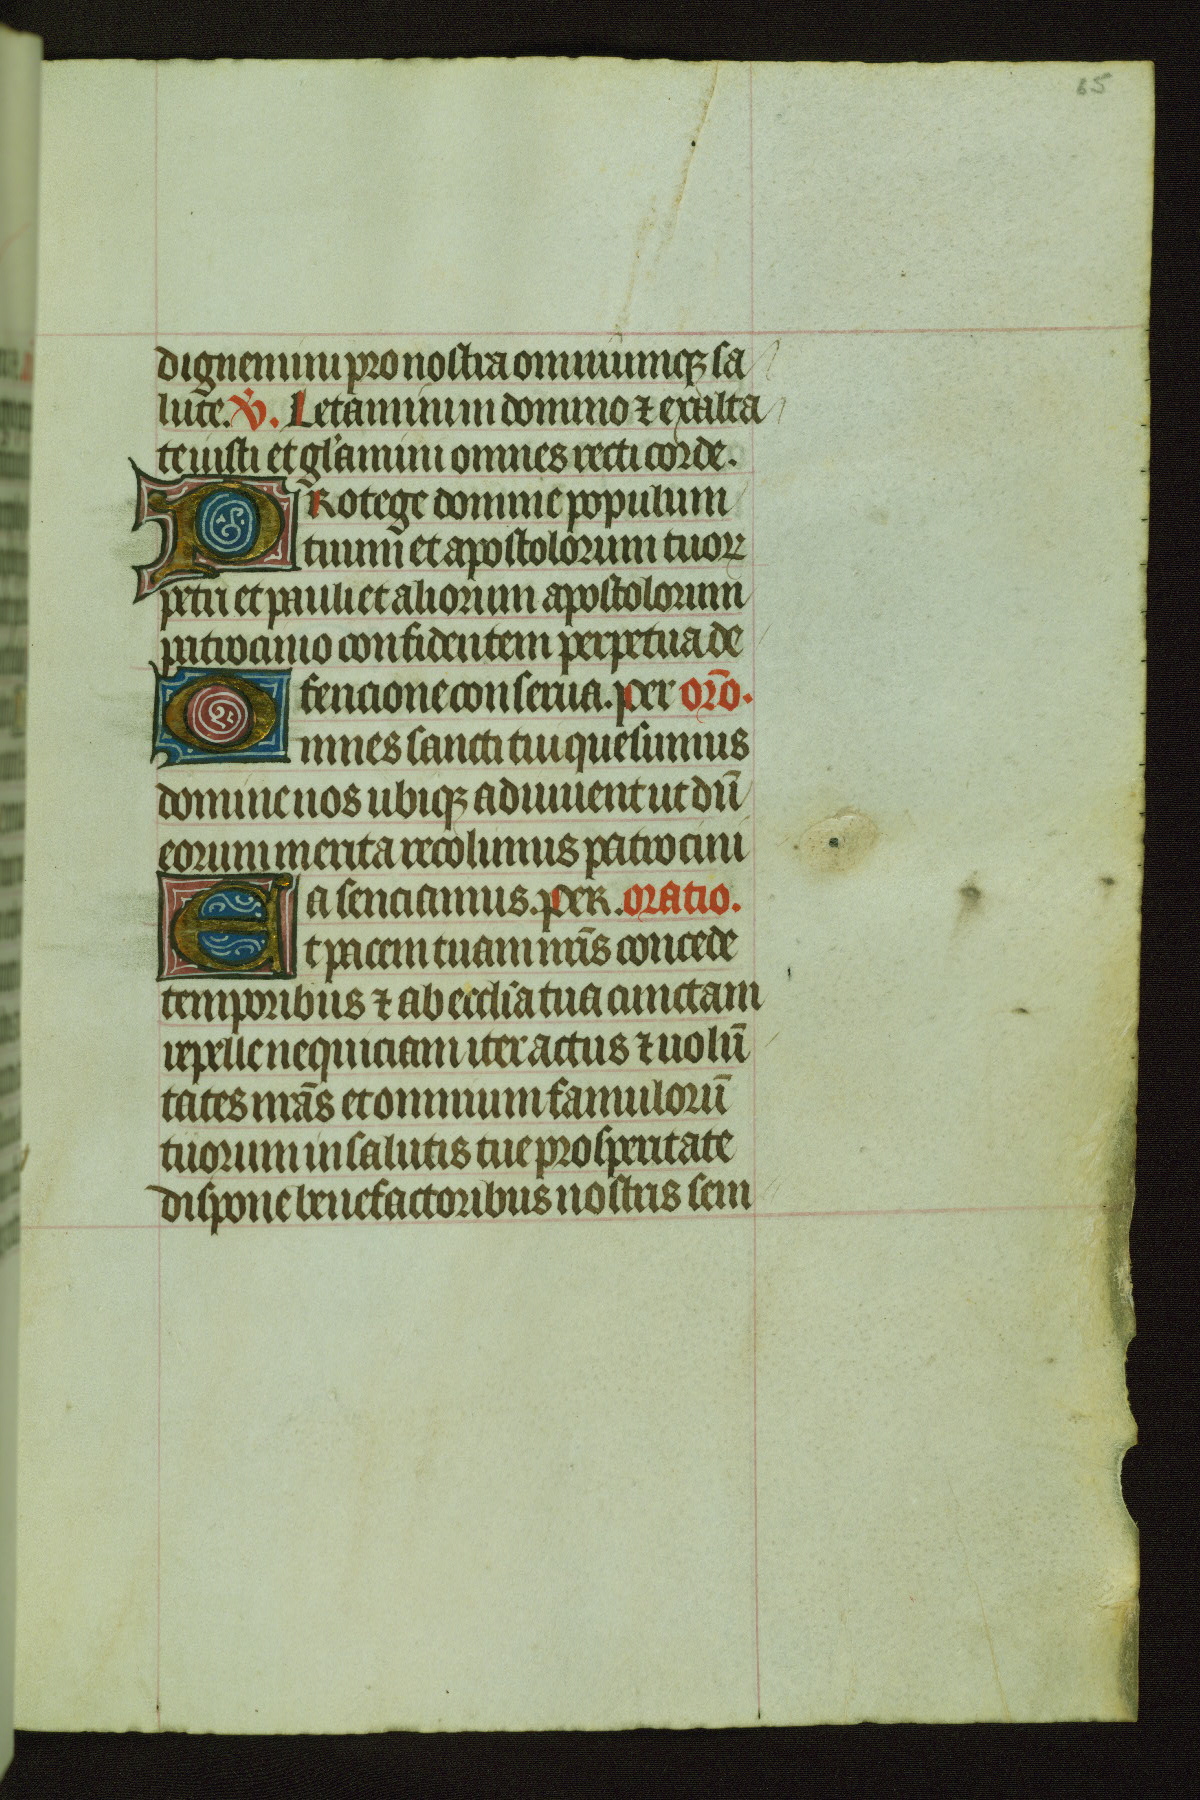 65
dignemini pro nostra omniumq; sa
lute. V. Letamini in domino ⁊ exalta
te iusti et gl'amini omnes recti corde.
PRotege domine populum
tuum et apostolorum tuoꝝ
petri et pauli et aliorum apostolorum
patrocinio confidentem perpetua de
fencione conserua. per orō.
Omnes sancti tui quesumus
domine nos ubiq; adiuuent ut dū
eorum merita recolimus patrocini
a senciamus. per. oratio.
Et pacem tuam nr̄is concede
temporibus ⁊ ab eccl'ia tua cunctam
repelle nequiciam iter actus ⁊ uolū
tates nr̄as et omnium famulorū
tuorum in salutis tue prosperitate
dispone benefactoribus nostris sem